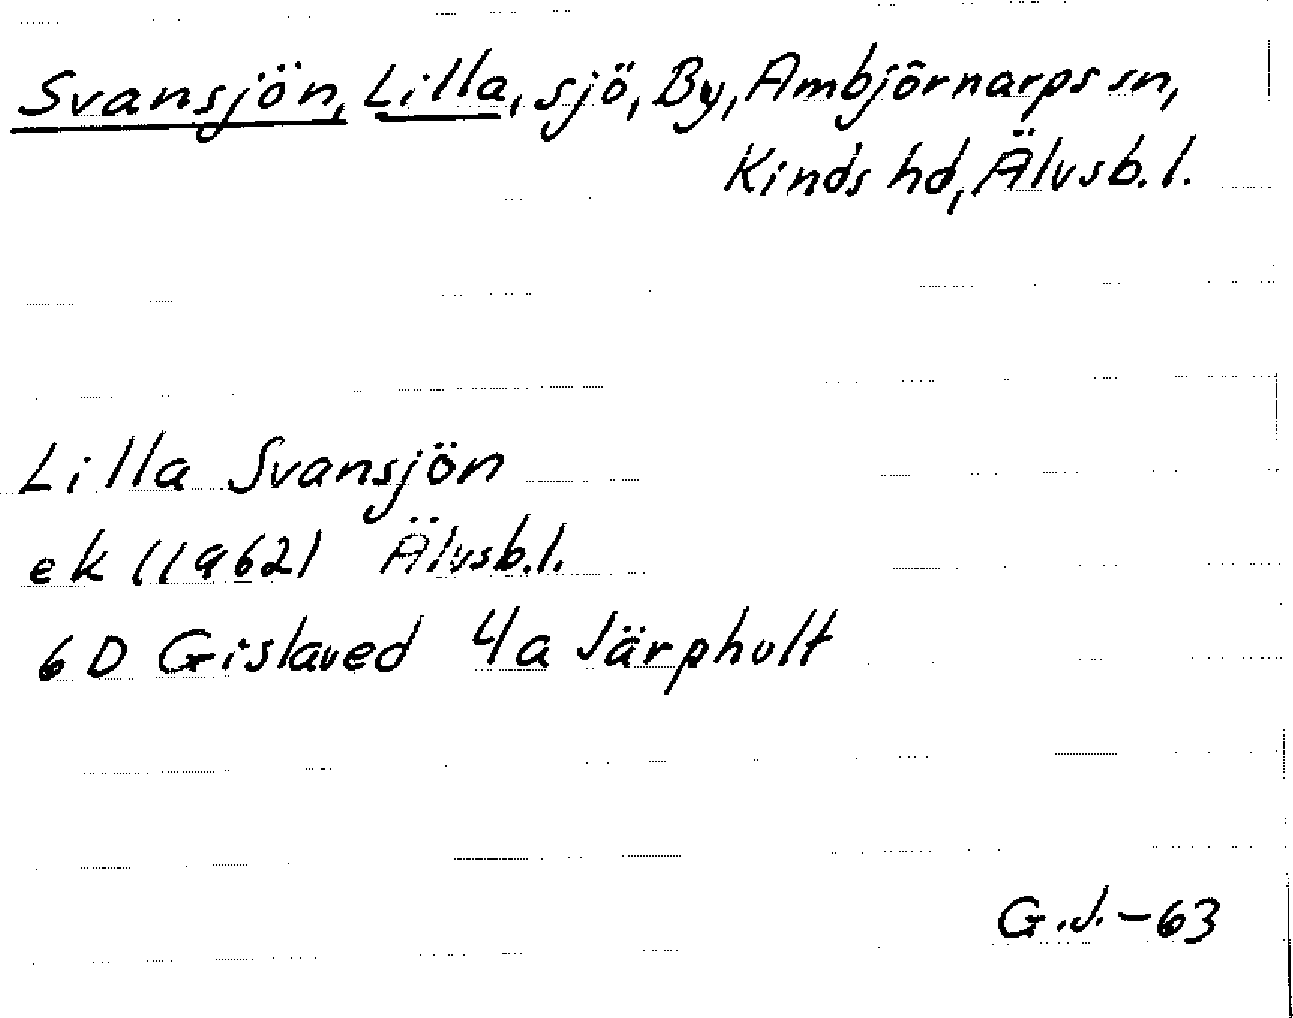 Svansjön, Lilla, sjö, By, Ambjörnarps sn,
Kinds hd, Älvsb. l.
Lilla Svansjön
ek (1962) Älvsb. l.
6D Gislaved 4a Järphult
G.J.-63